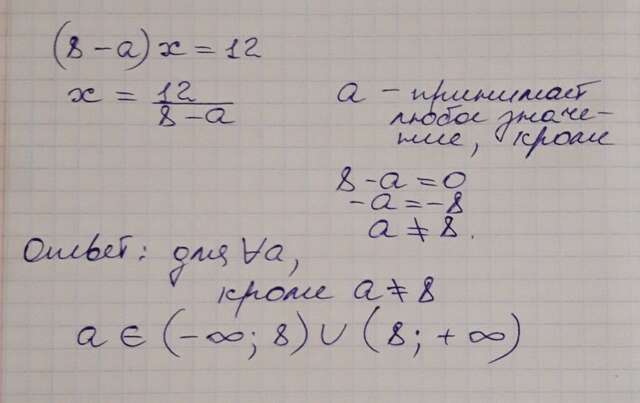 (8 - a) x = 12
x = 12 / (8 - a)
a - принимает
любое значе-
ние, кроме
8 - a = 0
-a = -8
a ≠ 8.
Ответ: для ∀a,
кроме a ≠ 8
a ∈ (-∞; 8) ∪ (8; +∞)